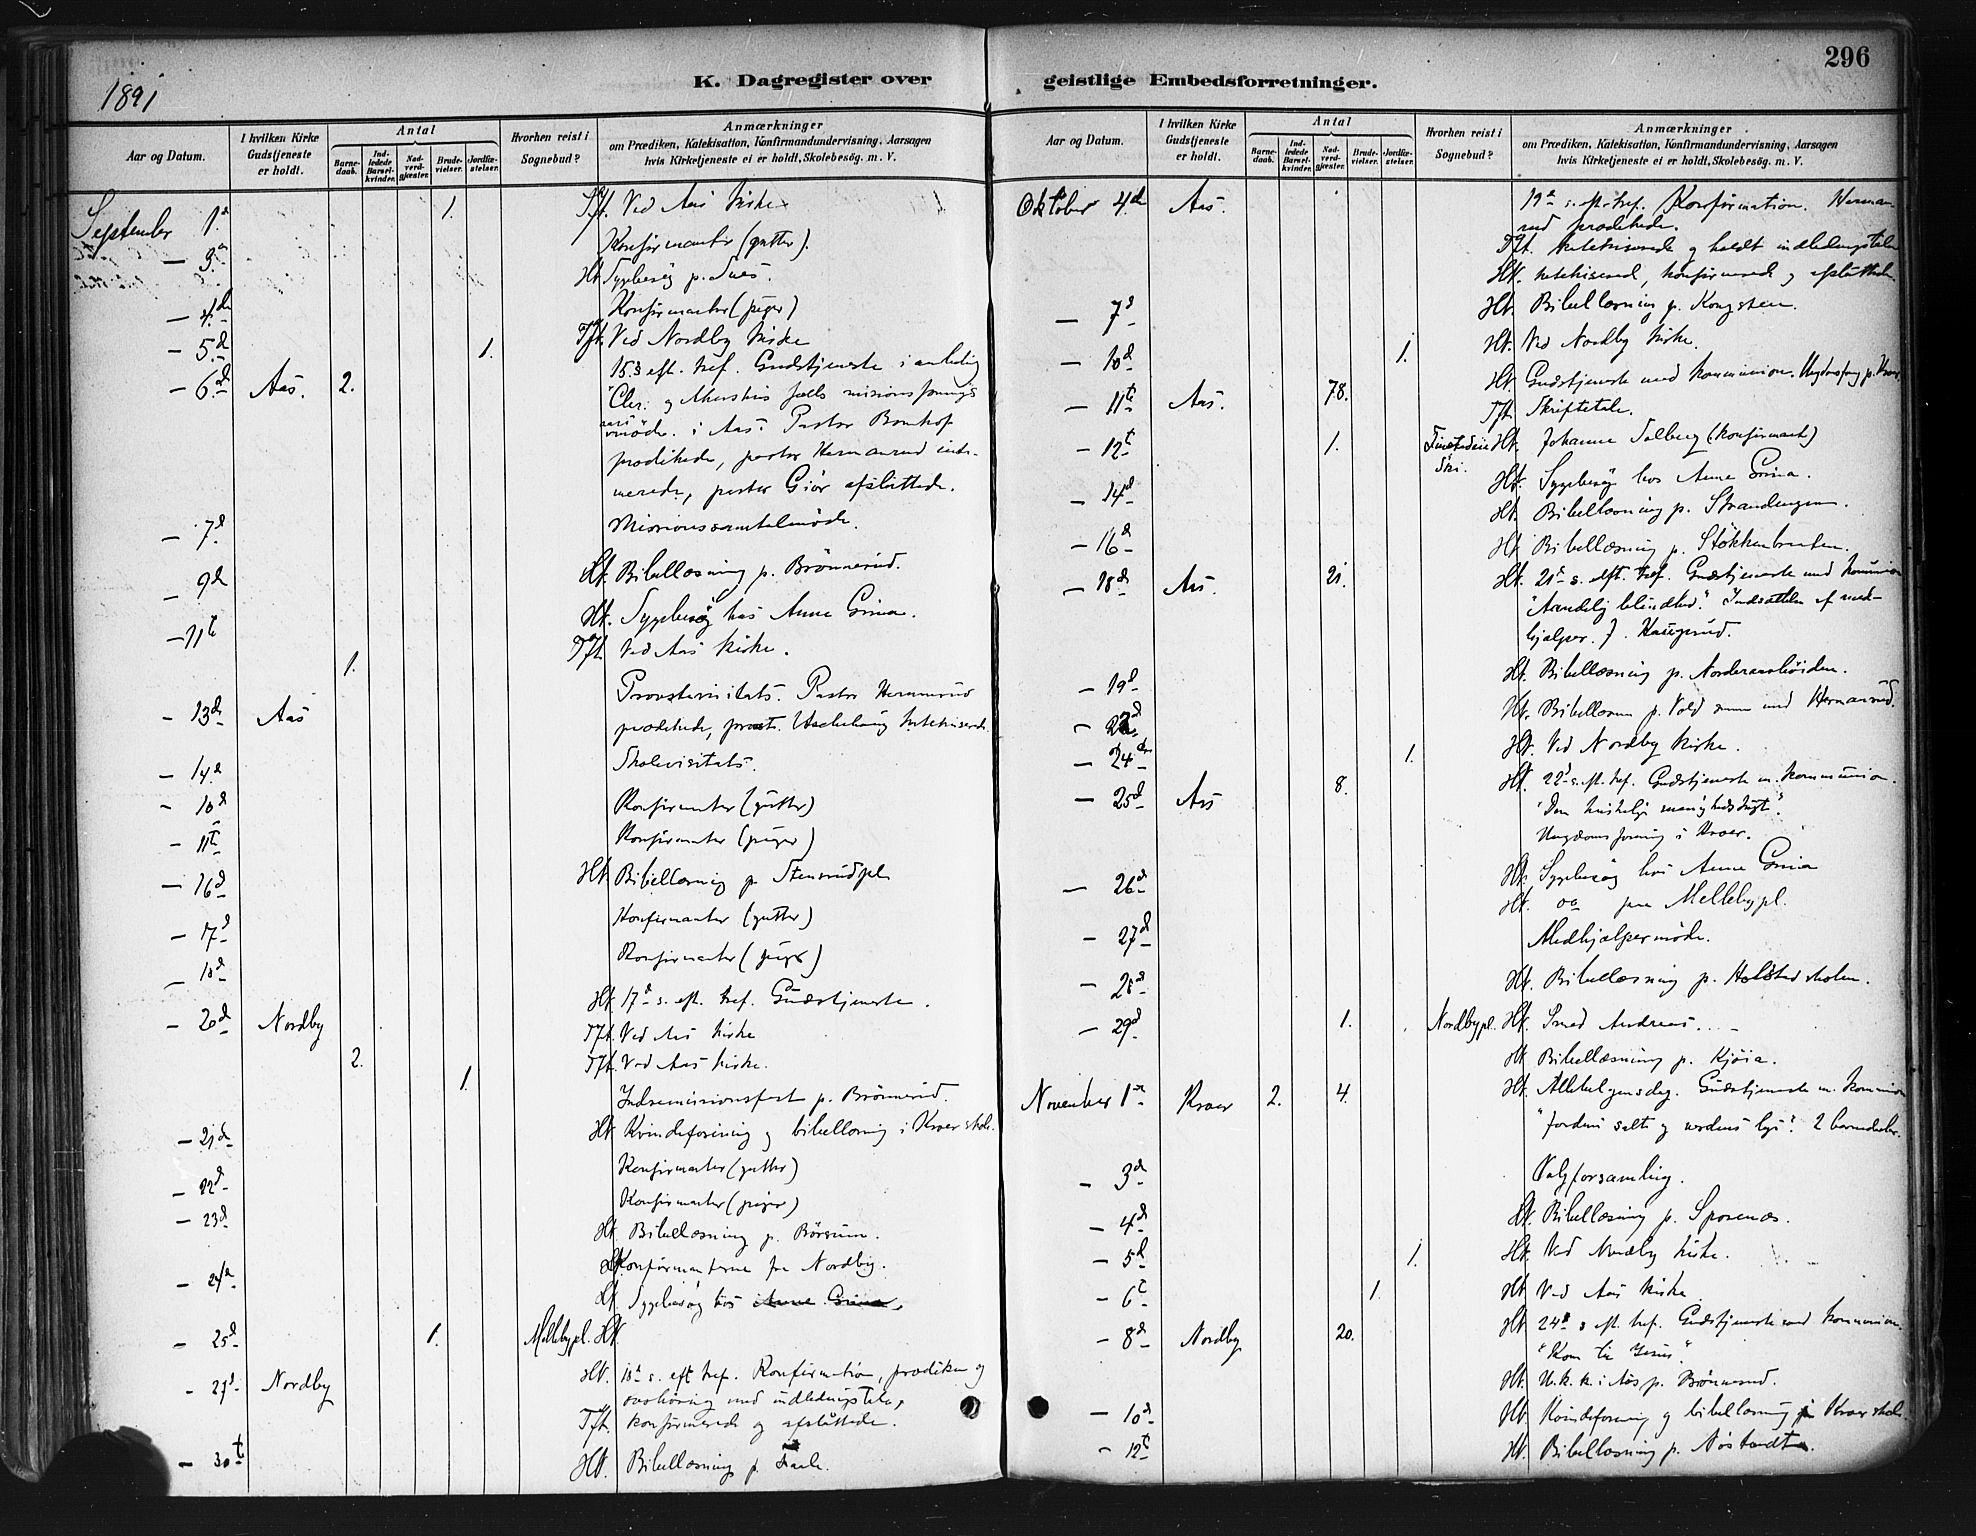 296
1891
K. Dagregister over geistlige Embedsforretninger.
Aar og Datum.
I hvilken Kirke Gudstjeneste er holdt.
Antal
Barne-daab.
Ind-ledede Barsel-kvinder.
Nad-verd-gjæster.
Brude-vielser.
Jordfæ-stelser.
Hvorhen reist i Sognebud?
Anmærkninger
om Prædiken, Katekisation, Konfirmandundervisning, Aarsagen
hvis Kirketjeneste ei er holdt, Skolebesøg. m. V.
September 1. 1. Tft. Ved Aas kirke
— 3. Konfirmanter (gutter).
Ht. Sygebesøg p.
— 4. Konfirmanter (piger)
— 5. 1. Tft. Ved Nordby kirke
— 6. Aas. 2. 15. s eft. tref. Gudstjeneste i anledn
og Akershus fælls missionsforenings
møde. i Aas. Pastor
prædikede, pastor Hernanrud
pastor Giör afsluttede.
— 7. Missionssamtalemøde.
— 9. Ht. Bibellæsning p. Brönnerud.
— 11t Ht. Sygebesøg hos Anne Grina.
1. Tft. Ved Aas kirke.
— 13. Aas Provstevisitats. Pastor Hernanrud
prædikede, provst katekiserede
— 14. Skolevisitats.
— 10. Konfirmanter (gutter)
— 11t Konfirmanter (piger)
— 16. Ht. Bibellæsning p. Stensrudpl.
— 17. Konfirmanter (gutter)
— 18. Konfirmanter (piger)
— 20. Nordby Ht. 17. s. eft. tref. Gudstjeneste.
2. Tft. Ved Aas kirke
1. Tft. Ved Aas kirke.
Indremissionsfest p. Brönnerud.
— 21. Ht. Kvindeforening og bibellæsning i Kroer skole.
— 22. Konfirmanter (gutter)
— 23. Konfirmanter (piger)
Ht. Bibellæsning p. Børsum.
— 24. Ht. Konfirmanterne fra Nordby.
Ht. Sygebesøg hos Anne Grina.
— 25. 1. Mellebypl. Ht.
— 27. Nordby Ht. 18. s. eft tref. Konfirmation, prædiken og
overhøring med indledningstale,
Tft. konfirmerede og afsluttede.
— 30t Ht. Bibellæsning p.
Aar og Datum.
I hvilken Kirke Gudstjeneste er holdt.
Antal
Barne-daab.
Ind-ledede Barsel-kvinder.
Nad-verd-gjæster.
Brude-vielser.
Jordfæ-stelser.
Hvorhen reist i Sognebud?
Anmærkninger
om Prædiken, Katekisation, Konfirmandundervisning, Aarsagen
hvis Kirketjeneste ei er holdt, Skolebesøg. m. V.
Oktober 4. Aas. 19. s. eft. tref. Konfirmation. Hernan-
rud prædikede.
Tft. katekiserede og holdt indledningstalen
Ht. katekiserede, konfirmerede og afsluttede
— 7. Ht. Bibellæsning p. Kongsteen.
— 10. 1. Ht. Ved Nordby kirke.
— 11te Aas. 78. Ht. Gudstjeneste med kommunion. p. Kroer.
Tft. Skriftetale.
— 12t 1. Ski. Ht. Johanne Solberg (konfirmant)
— 14. Ht. Sygebesøg hos Anne Grina.
Ht. Bibellæsning p. Strandengen.
— 16. Ht. Bibellæsning p. Stökkenbraaten.
— 18. Aas. 21. Ht. 21. s. eft. tref. Gudstjeneste med kommunion
"Aandelig blindhed." Indsættelse af med-
hjælper. J.
— 19. Ht. Bibellæsning p. Norderaashöiden.
— 22. Ht. Bibellæsn p. Vold sam med Hernanrud.
— 24. 1. Ht. Ved Nordby kirke.
— 25. Aas 8. Ht. 22. s. eft. tref. Gudstjeneste m. kommunion.
Ungdomsforening i Kroer.
— 26. Ht. Sygebesøg hos Anne Grina
Ht. og paa Mellebypl.
— 27. Medhjælpermöde.
— 28. Ht. Bibellæsning p. Holstad skolen.
— 29. 1. Nordbypl. Ht. Smed Andreas.
Ht. Bibellæsning p. Kjöia.
November 1. Kroer 2. 4. Ht. Allehelgensdag. Gudstjeneste m. kommunion
"Jordens salt og verdens lys". 2 barnedaaber.
— 3. Valgforsamling.
— 4. Ht. Bibellæsning p. Sporenæs.
— 5. 1. Ht. Ved Nordby kirke.
— 6t 1. Ht. Ved Aas kirke
— 8. Nordby 20. Ht. 24. s eft. tref. Gudstjeneste med kommunion.
"Kom til Jesus".
Ht. U. k. k. i Aas p. Brönnerud.
— 10. Ht. Kvindeforening og bibellæsning p Kroer skole.
— 12t Ht. Bibellæsning p.